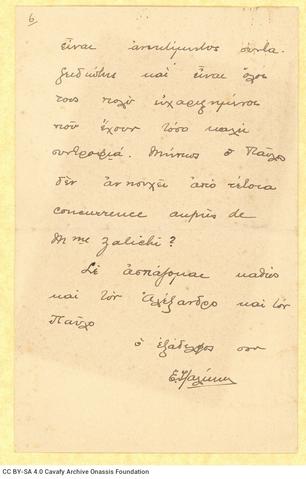 6
εἶναι ἀνεκτίμητος συντα-
ξειδιώτης καὶ εἶναι ὅλοι
τους πολὺ εὐχαριστημένοι
ποῦ ἔχουν τόσο καλὴ
συντροφιά. Μήπως ὁ Παῦλος
δὲν ἀνησυχεῖ ἀπὸ τέτοια
concurrence auprès de
Mme Zalichi?
Σὲ ἀσπάζομαι καθὼς
καὶ τὸν Ἀλέξανδρο καὶ τὸν
Παῦλο
ὁ ἐξάδελφός σου
CC BY-SA 4.0 Cavafy Archive Onassis Foundation